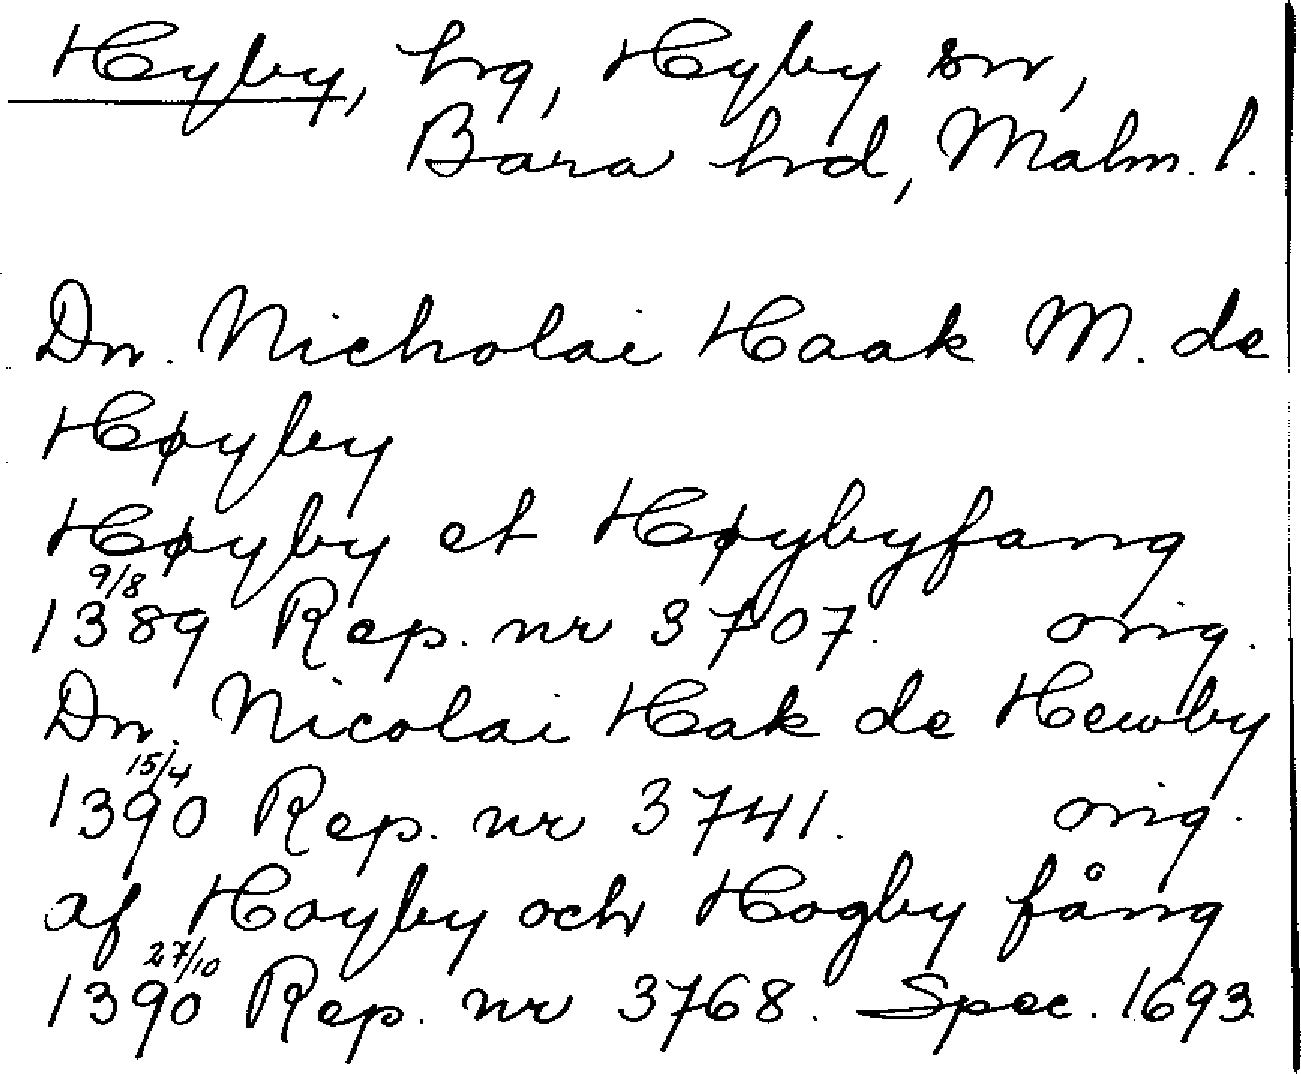 Hyby, hrg, Hyby sn,
Bara hrd, Malm. l.
Dn. Nicholai Haak M. de
Høyby
Høyby et Høybyfang
9/8
1389 Rep. nr 3707. orig.
Dn. Nicolai Hak de Hewby
15/4
1390 Rep. nr 3741. orig.
af Hoyby och Hogby fång
27/10
1390 Rep. nr 3768. Spec. 1693